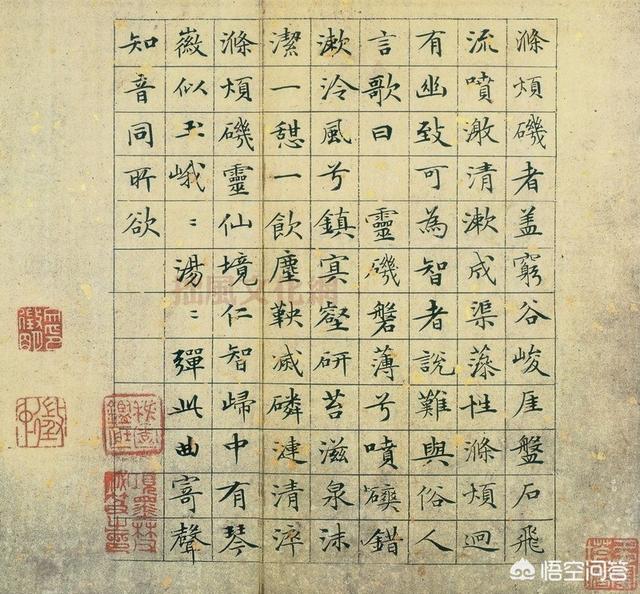 滌煩磯者盖窮谷峻厓盤石飛
流噴激清漱成渠藻性滌煩迥
有幽致可為智者說難與俗人
言歌曰 靈磯磐薄兮噴錯
漱泠風兮鎮冥壑研苔滋泉沫
潔一憩一飲塵鞅滅磷漣清淬
滌煩磯靈仙境仁智歸中有琴
徽似玉峨〻湯〻彈此曲寄聲
知音同所欲
悟空问答